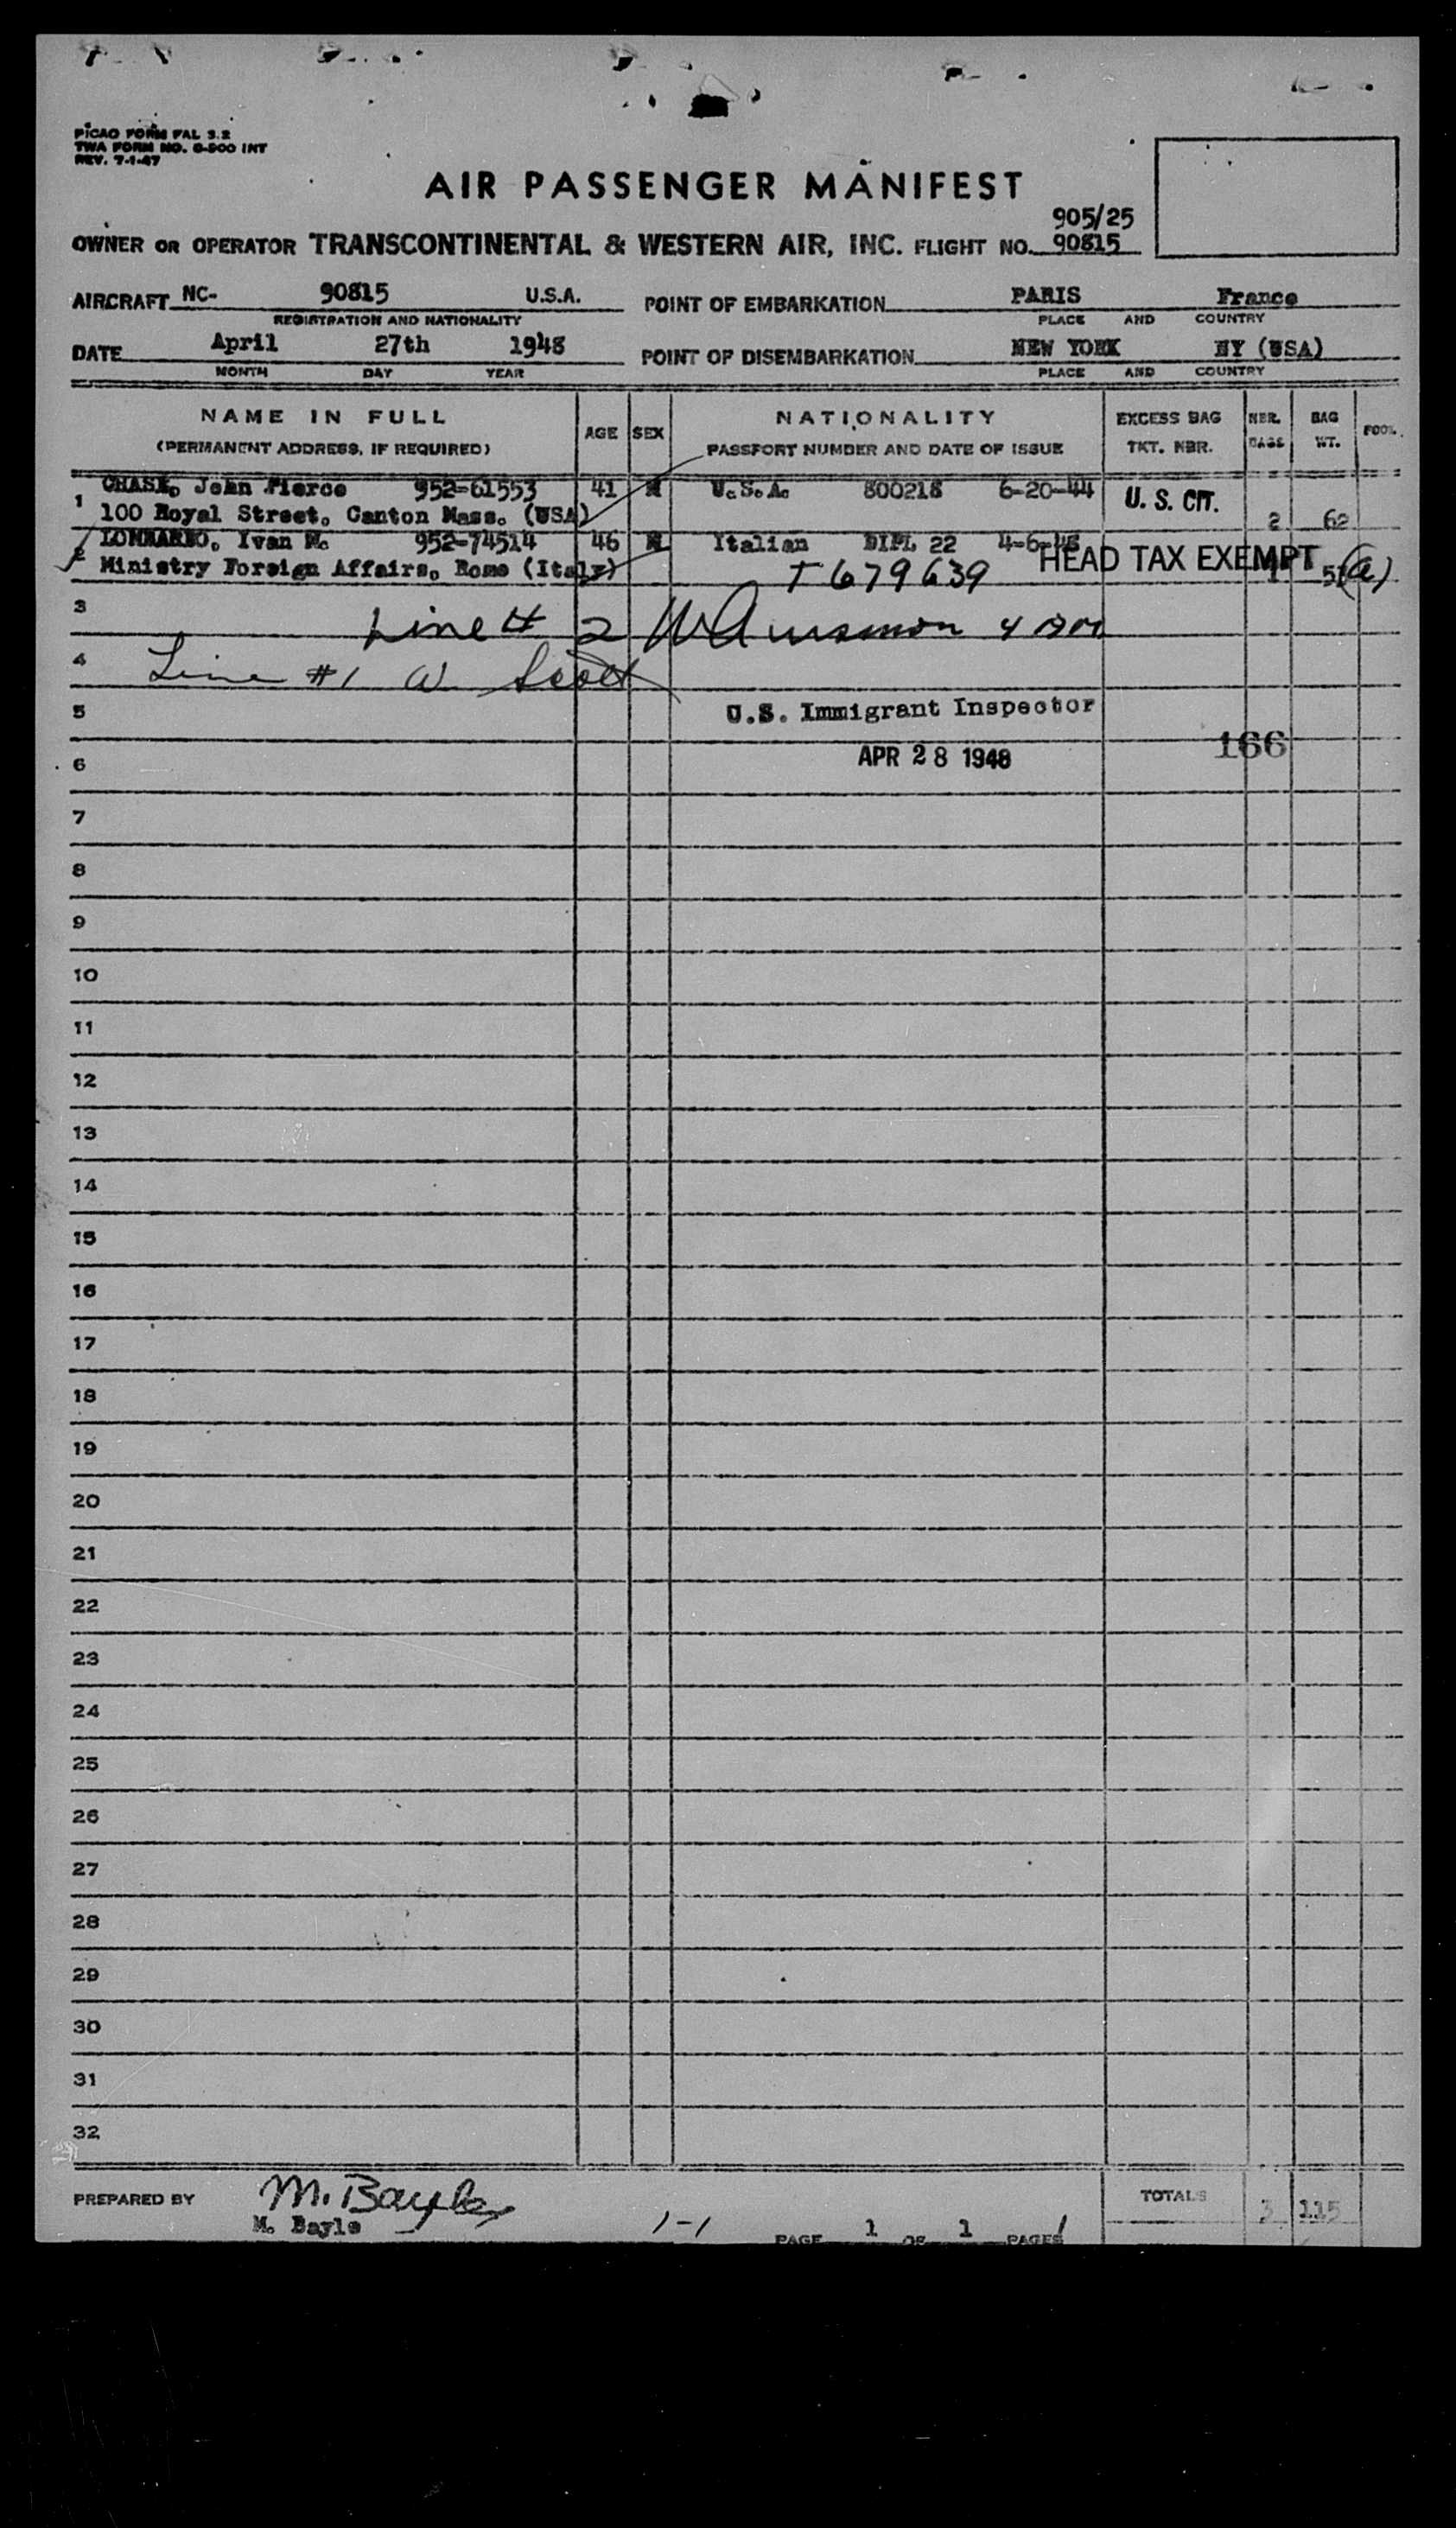 PICAO FORM FAL 3.2
TWA FORM NO. 0-900 INT
REV. 7-1-47
AIR PASSENGER MANIFEST
905/25
OWNER OR OPERATOR TRANSCONTINENTAL & WESTERN AIR, INC. FLIGHT NO. 90815
AIRCRAFT NC- 90815 U.S.A. POINT OF EMBARKATION PARIS France
REGISTRATION AND NATIONALITY PLACE AND COUNTRY
DATE April 27th 1948 POINT OF DISEMBARKATION NEW YORK NY (USA)
MONTH DAY YEAR PLACE AND COUNTRY
NAME IN FULL AGE SEX NATIONALITY EXCESS BAG NBR. BAG
(PERMANENT ADDRESS, IF REQUIRED) PASSPORT NUMBER AND DATE OF ISSUE TKT. NBR. BAGS WT.
CHASE, John Pierce 952-61553 41 M U.S.A. 800218 6-20-44 U. S. CIT.
1 100 Royal Street, Canton Mass. (USA) 2 62
LOMBARDO, Ivan M. 952-74514 46 M Italian DIPL 22 4-6-48 HEAD TAX EXEMPT
2 Ministry Foreign Affairs, Rome (Italy) T 679639 (a)
3 Line # 2
4 Line #1 W Scott
5 U.S. Immigrant Inspector
6 APR 28 1948 166
7
8
9
10
11
12
13
14
15
16
17
18
19
20
21
22
23
24
25
26
27
28
29
30
31
32
PREPARED BY M. Bayle TOTALS 3 115
M. Bayle 1-1 PAGE 1 OF 1 PAGES